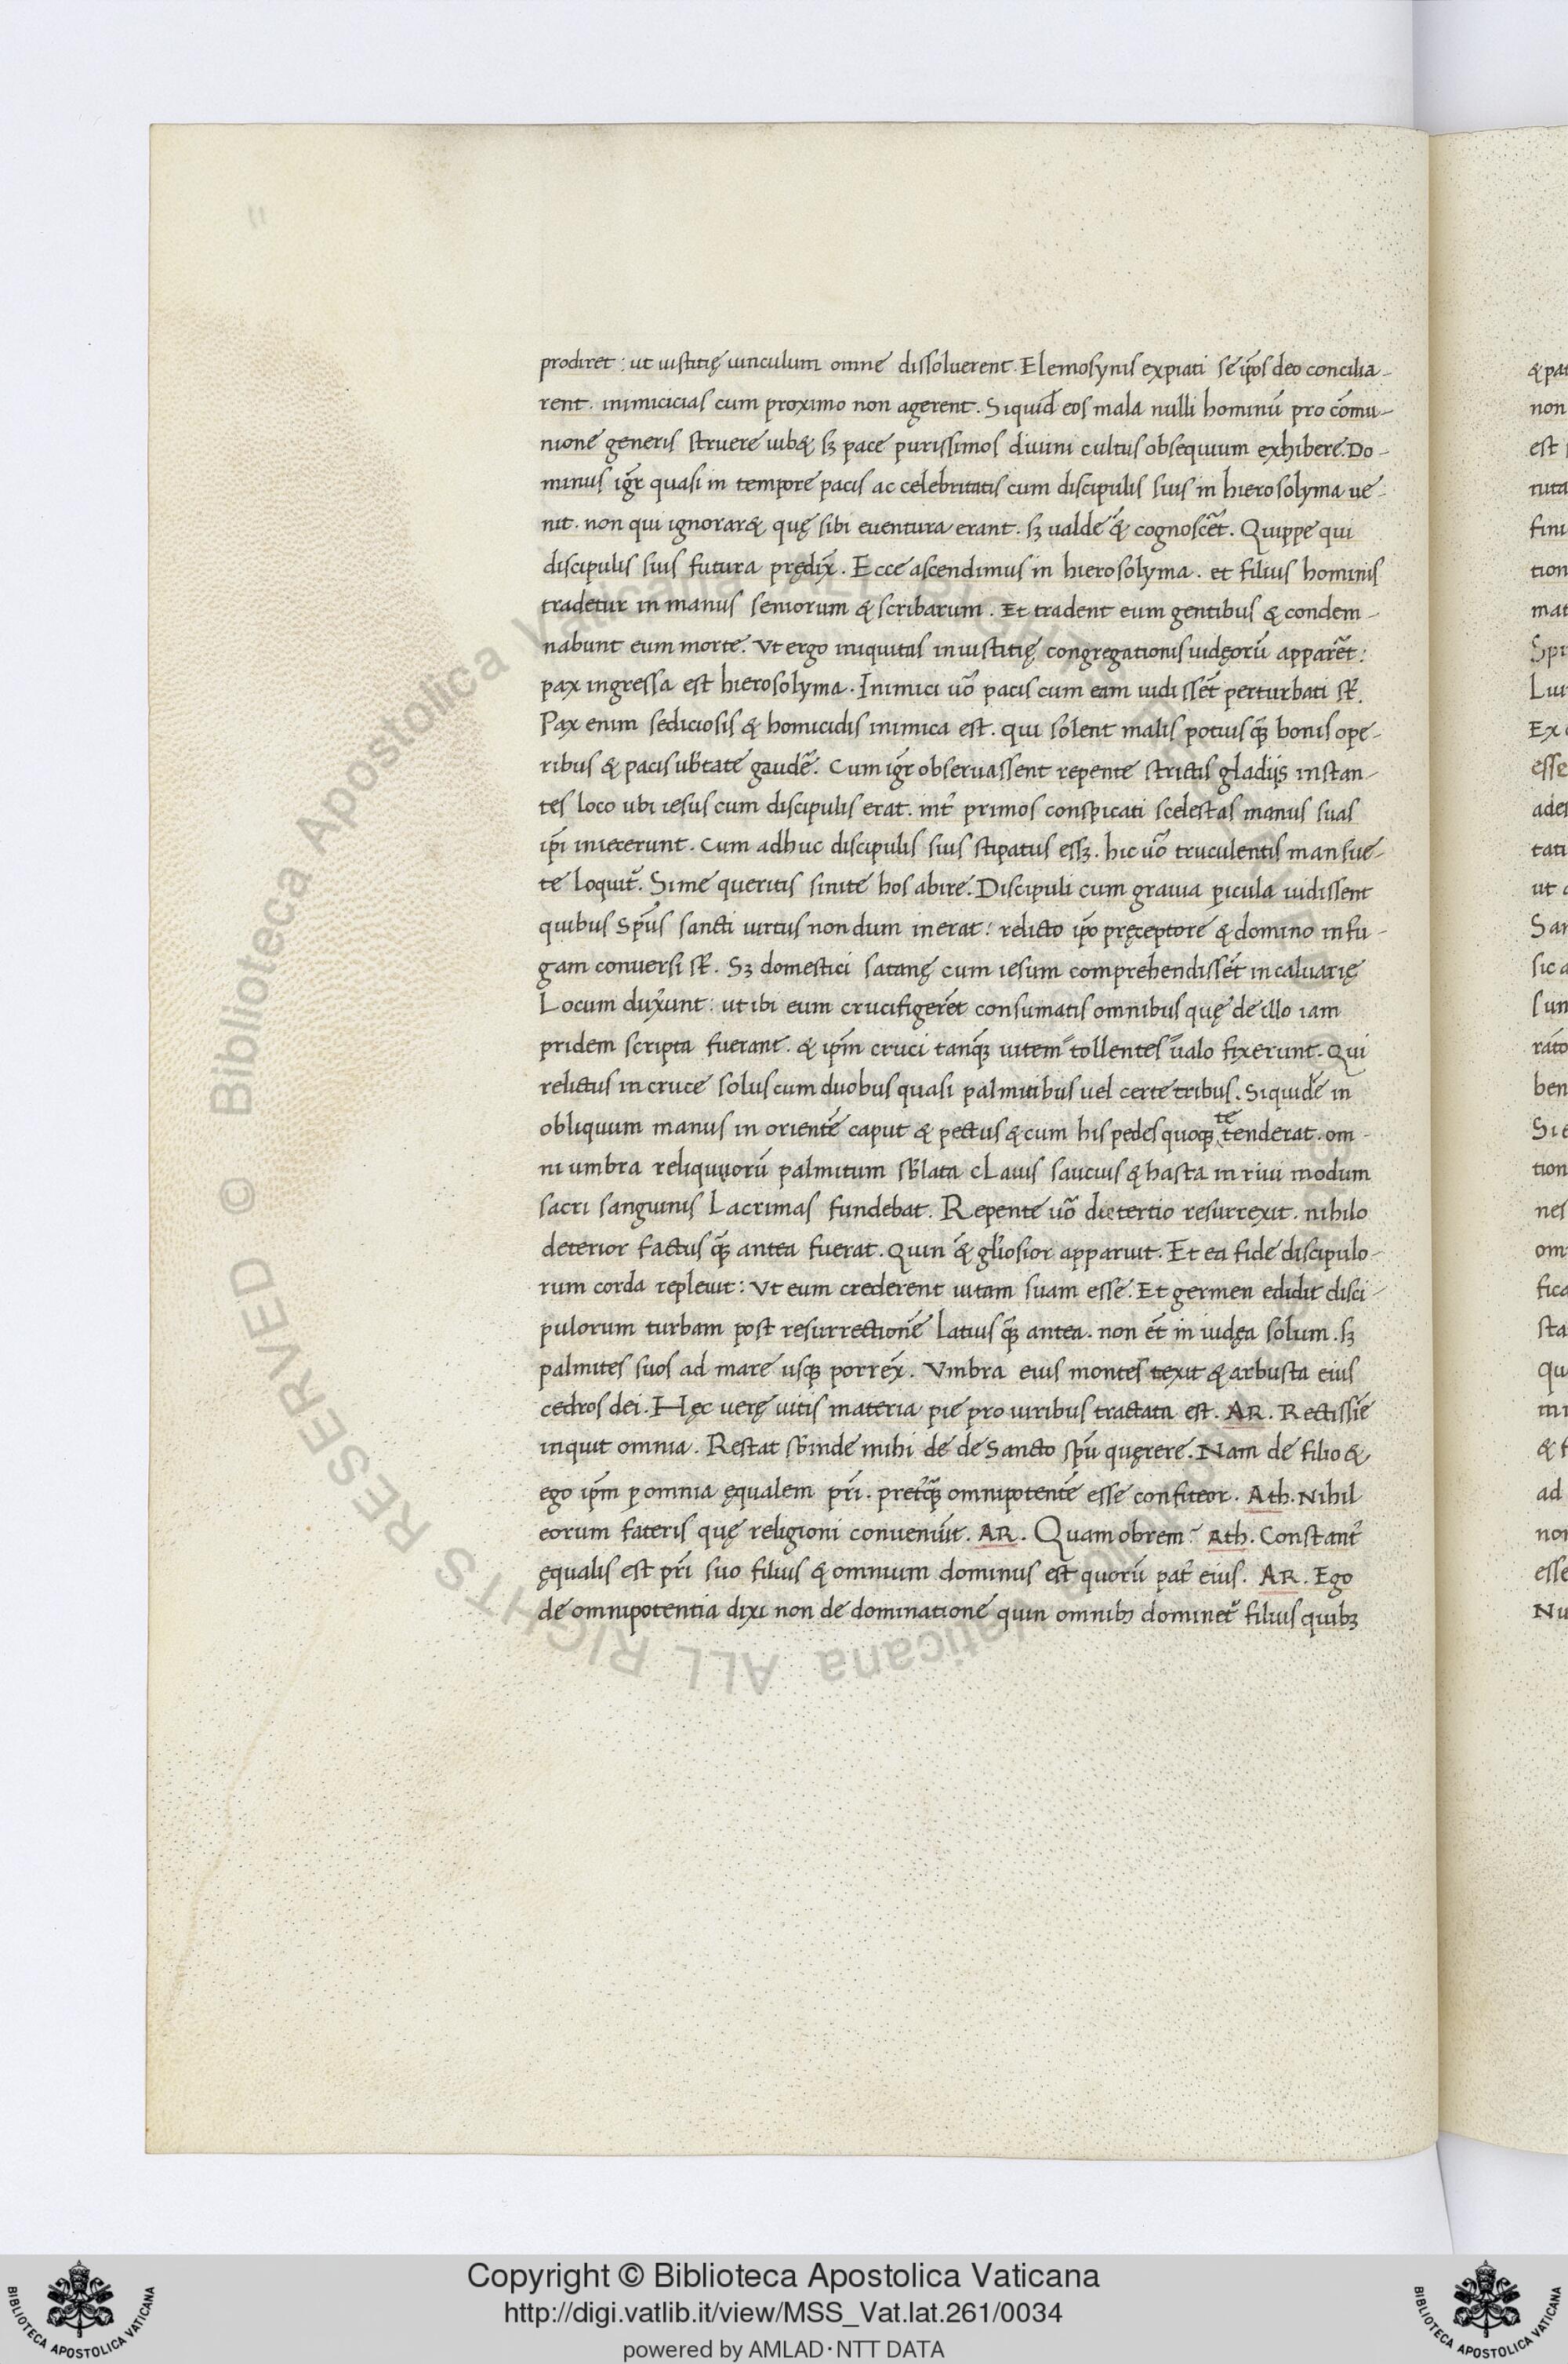 prodiret : ut iustitię uinculum omne dissoluerent. Elemosynis expiati se ip̄os deo concilia-
rent. inimicicias cum proximo non agerent. Siquid̄ eos mala nulli hominū pro cōmu-
nione generis struere iub& sꝫ pace purissimos diuini cultus obsequium exhibere. Do-
minus igr̄ quasi in tempore pacis ac celebritatis cum discipulis suis in hierosolyma ue-
nit. non qui ignorar& quę sibi euentura erant. sꝫ ualde &̄ cognoscēt. Quippe qui
discipulis suis futura prędix̄. Ecce ascendimus in hierosolyma. et filius hominis
tradetur in manus seniorum & scribarum. Et tradent eum gentibus & condem-
nabunt eum morte. Vt ergo iniquitas iniustitię congregationis iudęorū apparēt:
pax ingressa est hierosolyma. Inimici uō pacis cum eam uidissēt perturbati st̄.
Pax enim sediciosis & homicidis inimica est. qui solent malis potius qꝫ̄ bonis ope-
ribus & pacis ub̄tate gaudē. Cum igr̄ obseruassent repente strictis gladijs instan-
tes loco ubi iesus cum discipulis erat. int̄ primos conspicati scelestas manus suas
ip̄i iniecerunt. Cum adhuc discipulis suis stipatus essꝫ. hic uō truculentis mansue-
te loquit̄. Si me queritis sinite hos abire. Discipuli cum grauia ꝑicula uidissent
quibus sp̄us sancti uirtus non dum inerat: relicto ip̄o pręceptore & domino in fu-
gam conuersi st̄. Sꝫ domestici satanę cum iesum comprehendissēt in caluarię
Locum dux̄unt: ut ibi eum crucifigerēt consumatis omnibus quę de illo iam
pridem scripta fuerant. & ip̄m cruci tanqꝫ̄ uitem tollentes ūalo fixerunt. Qui
relictus in cruce solus cum duobus quasi palmitibus uel certe tribus. Siquidē in
obliquum manus in orientē caput & pectus & cum his pedes quoqꝫ te tenderat. om-
ni umbra reliquuorū palmitum sb̄lata clauis saucius & hasta in riui modum
sacri sanguinis Lacrimas fundebat. Repente uō die tertio resurrexit. nihilo
deterior factus qꝫ̄ antea fuerat. Quin &̄ gl̄iosior apparuit. Et ea fide discipulo-
rum corda repleuit: Vt eum crederent uitam suam esse. Et germen edidit disci-
pulorum turbam post resurrectionē Latius qꝫ̄ antea. non ēt in iudęa solum. sꝫ
palmites suos ad mare usqꝫ porrex̄. Vmbra eius montes texit & arbusta eius
cedros dei. Hęc uerę uitis materia pie pro uiribus tractata est. AR. Rectissīe
inquit omnia. Restat sb̄inde mihi de de Sancto sp̄u quęrere. Nam de filio &
ego ip̄m ꝑ omnia ęqualem pr̄i. pret̄qꝫ̄ omnipotentē esse confiteor. Ath. Nihil
eorum fateris quę religioni conueniūt. AR. Quamobrem? Ath. Constant̄
ęqualis est pr̄i suo filius & omnium dominus est quorū pat̄ eius. AR. Ego
de omnipotentia dixi non de dominatione quin omnibꝫ dominet̄ filius quibꝫ
Copyright © Biblioteca Apostolica Vaticana
http://digi.vatlib.it/view/MSS_Vat.lat.261/0034
powered by AMLAD·NTT DATA